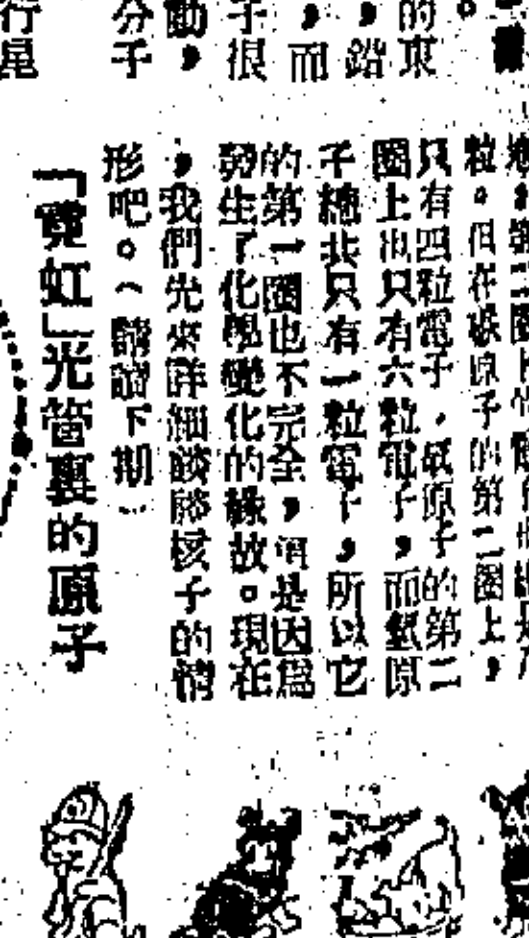 的東
，鉛
，而
子很
動，
分子
行星
粒。但在碳原子的第二圈上，
只有四粒電子，氧原子的第二
圈上也只有六粒電子，而氫原
子總共只有一粒電子，所以它
的第一圈也不完全，這是因爲
發生了化學變化的緣故。現在
，我們先來詳細談談核子的情
形吧。（請讀下期）
「霓虹」光管裏的原子